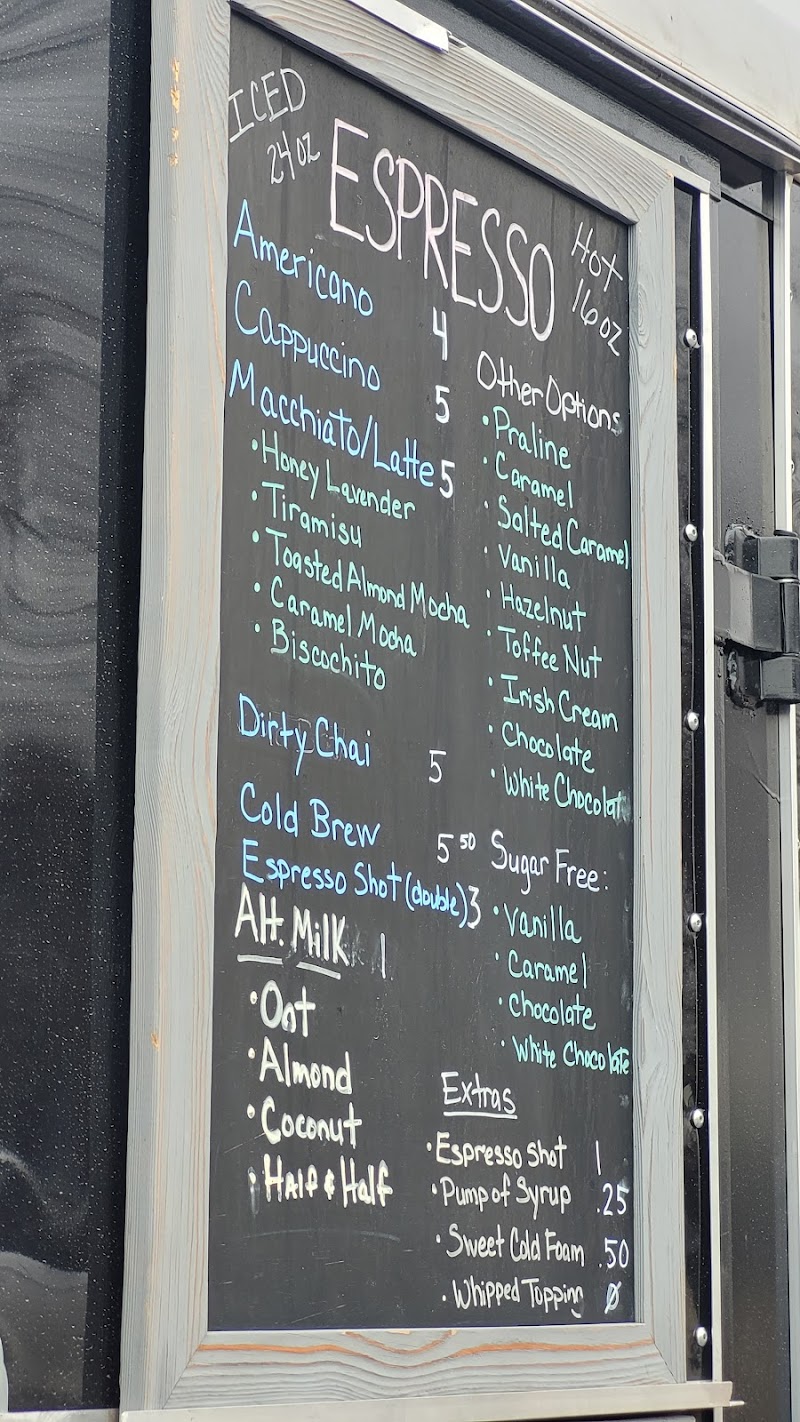 ICED
24 oz
ESPRESSO
Hot
16 oz
Americano 4
Cappuccino 5
Macchiato/Latte 5
• Honey Lavender
• Tiramisu
• Toasted Almond Mocha
• Caramel Mocha
• Biscochito
Dirty Chai 5
Cold Brew 5 50
Espresso Shot (double) 3
Alt. Milk 1
• Oat
• Almond
• Coconut
• Half & Half
Other Options
• Praline
• Caramel
• Salted Caramel
• Vanilla
• Hazelnut
• Toffee Nut
• Irish Cream
• Chocolate
• White Chocolat
Sugar Free:
• Vanilla
• Caramel
• Chocolate
• White Chocolate
Extras
• Espresso Shot 1
• Pump of Syrup .25
• Sweet Cold Foam .50
• Whipped Topping Ø